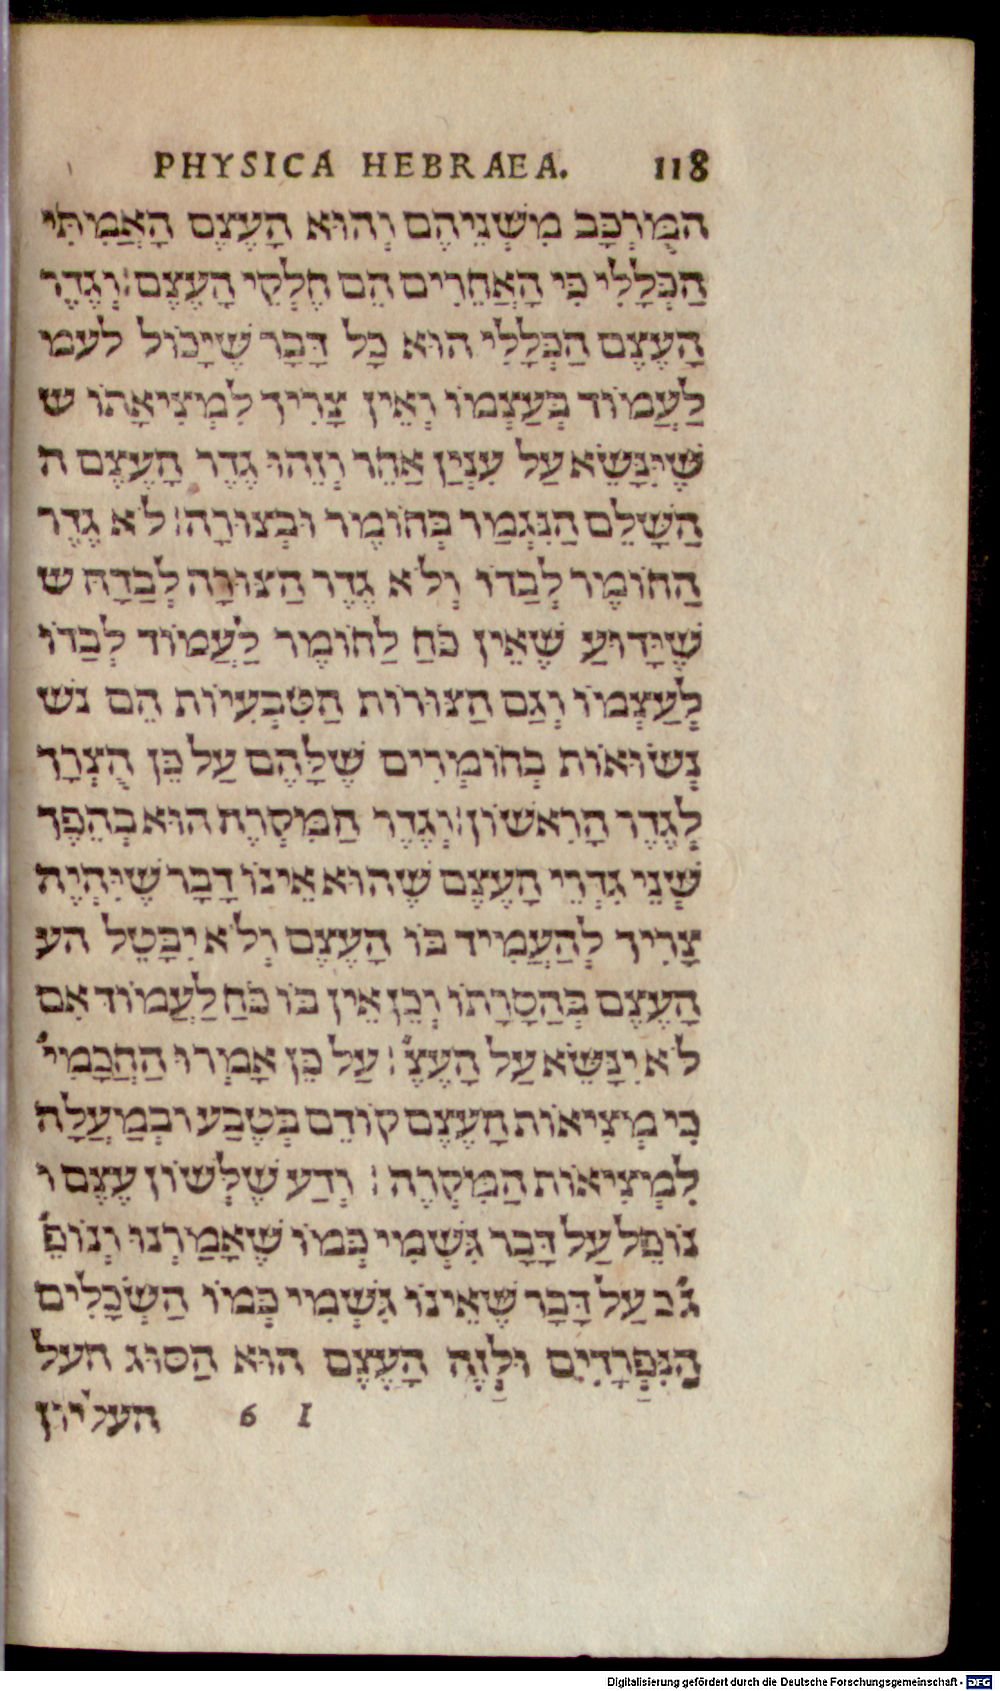 PHYSICA HEBRAEA. 118
הַמֻּרְכָּב מִשְּׁנֵיהֶם וְהוּא הָעֶצֶם הָאֲמִתִּי
הַכְּלָלִי כִּי הָאֲחֵרִים הֵם חֶלְקֵי הָעֶצֶם׃ וְגֶדֶר
הָעֶצֶם הַכְּלָלִי הוּא כָל דָּבָר שֶׁיָּכוֹל לעמ
לַעֲמוֹד בְּעַצְמוֹ וְאֵין צָרִיךְ לִמְצִיאָתוֹ ש
שֶׁיִּנָּשֵׂא עַל עִנְיַן אַחֵר וְזֵהוּ גֶדֶר הָעֶצֶם ה
הַשָּׁלֵם הַנִּגְמַר בְּחוֹמֶר וּבְצוּרָה׃ לֹא גֶדֶר
הַחוֹמֶר לְבַדוֹ וְלֹא גֶדֶר הַצּוּרָה לְבַדָּהּ ש
שֶׁיָּדוּעַ שֶׁאֵין כֹּחַ לַחוֹמֶר לַעֲמוֹד לְבַדוֹ
לְעַצְמוֹ וְגַם הַצּוּרוֹת הַטִּבְעִיוֹת הֵם נֹש
נְשׂוּאוֹת בְּחוֹמְרִים שֶׁלָּהֶם עַל כֵּן הֻצְרָךְ
לְגֶדֶר הָרִאשׁוֹן׃ וְגֶדֶר הַמִּקְרֶה הוּא בְהֵפֶךְ
שְׁנֵי גִדְרֵי הָעֶצֶם שֶׁהוּא אֵינוֹ דָבָר שֶׁיִּהְיֶה
צָרִיךְ לְהַעֲמִיד בּוֹ הָעֶצֶם וְלֹא יִבָּטֵל הע
הָעֶצֶם בְּהַסָרָתוֹ וְכֵן אֵין בּוֹ כֹּחַ לַעֲמוֹד אִם
לֹא יִנָּשֵׂא עַל הָעֶצֶ׳׃ עַל כֵּן אָמְרוּ הַחֲכָמִי׳
כִּי מְצִיאוֹת הָעֶצֶם קוֹדֵם בְּטֶבַע וּבְמַעֲלָה
לִמְצִיאוֹת הַמִּקְרֶה׃ וְדַע שֶׁלְּשׁוֹן עֶצֶם ו
נוֹפֵל עַל דָּבָר גִּשְׁמִי כְּמוֹ שֶׁאָמַרְנוּ וְנוֹפֵ׳
ג׳כ עַל דָּבָר שֶׁאֵינוֹ גִּשְׁמִי כְּמוֹ הַשְּׂכָלִים
הַנִּפְרָדִים וְלָזֶה הָעֶצֶם הוּא הַסּוּג העל
I 6 העליון
Digitalisierung gefördert durch die Deutsche Forschungsgemeinschaft - DFG